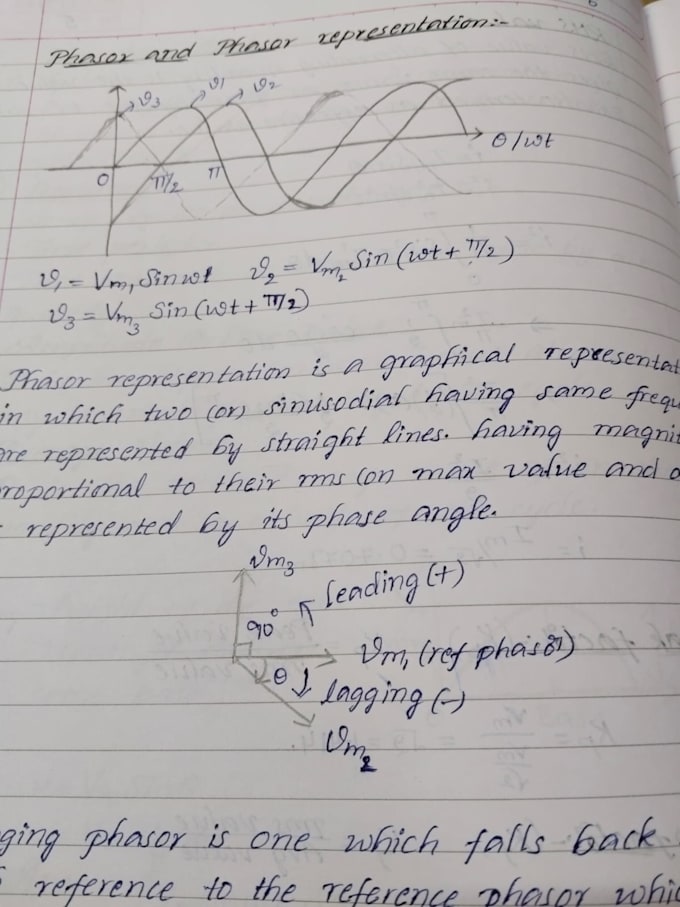 Phasor and Phasor representation:-
v3 v1 v2
0 π/2 π θ/wt
v1 = Vm1 Sinwt v2 = Vm2 Sin (wt + π/2)
v3 = Vm3 Sin (wt + π/2)
Phasor representation is a graphical representat
in which two (or) sinusodial having same frequ
are represented by straight lines. having magnit
roportional to their rms (or) max value and
represented by its phase angle.
Vm3
leading (+)
90°
Vm1 (ref phasor)
θ
lagging (-)
Vm2
ging phasor is one which falls back
reference to the reference phasor whic